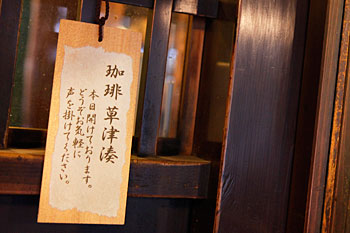 珈琲 草津湊
本日開けております。
どうぞお気軽に
声を掛けてください。